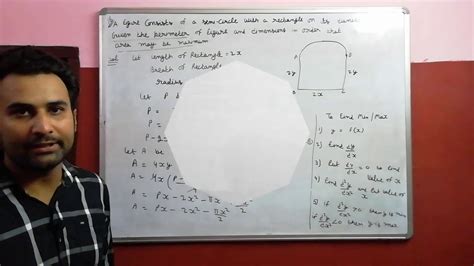 A figure consists of a semi-circle with a rectangle on its
Given the perimeter of figure find dimensions in order that
area may be maximum
Sol. Let length of Rectangle = 2x
Breath of Rectangle
radius
Let P
P =
P =
P -
Let A be
A = 4xy
A = 4x(P-
A = Px - 2x² - πx
A = Px - 2x² - πx²/2
2y
2y
2x
To find Min/Max
1) y = f(x)
2) find dy/dx
3) let dy/dx = 0 to find
value of x
4) find d²y/dx² put value of
x
5) if d²y/dx² > 0 then y is min
if d²y/dx² < 0 then y is max